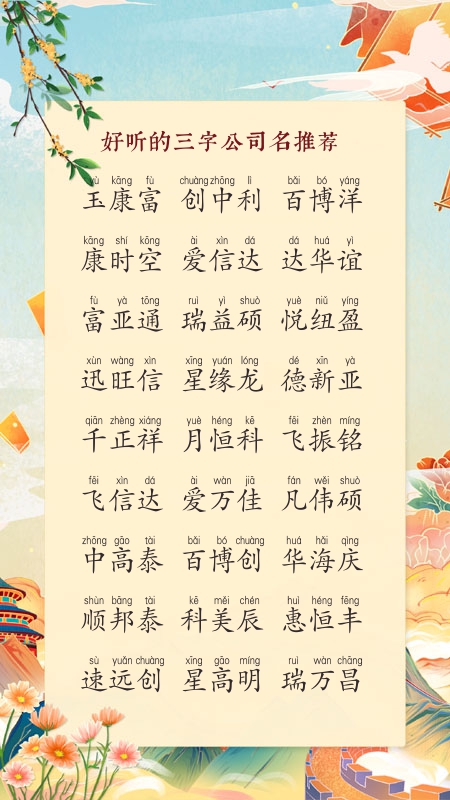 好听的三字公司名推荐
yù kāng fù chuàng zhōng lì bǎi bó yáng
玉康富 创中利 百博洋
kāng shí kōng ài xìn dá dá huá yì
康时空 爱信达 达华谊
fù yà tōng ruì yì shuò yuè niǔ yíng
富亚通 瑞益硕 悦纽盈
xùn wàng xìn xīng yuán lóng dé xīn yà
迅旺信 星缘龙 德新亚
qiān zhèng xiáng yuè héng kē fēi zhèn míng
千正祥 月恒科 飞振铭
fēi xìn dá ài wàn jiā fán wěi shuò
飞信达 爱万佳 凡伟硕
zhōng gāo tài bǎi bó chuàng huá hǎi qìng
中高泰 百博创 华海庆
shùn bāng tài kē měi chén huì héng fēng
顺邦泰 科美辰 惠恒丰
sù yuǎn chuàng xīng gāo míng ruì wàn chāng
速远创 星高明 瑞万昌